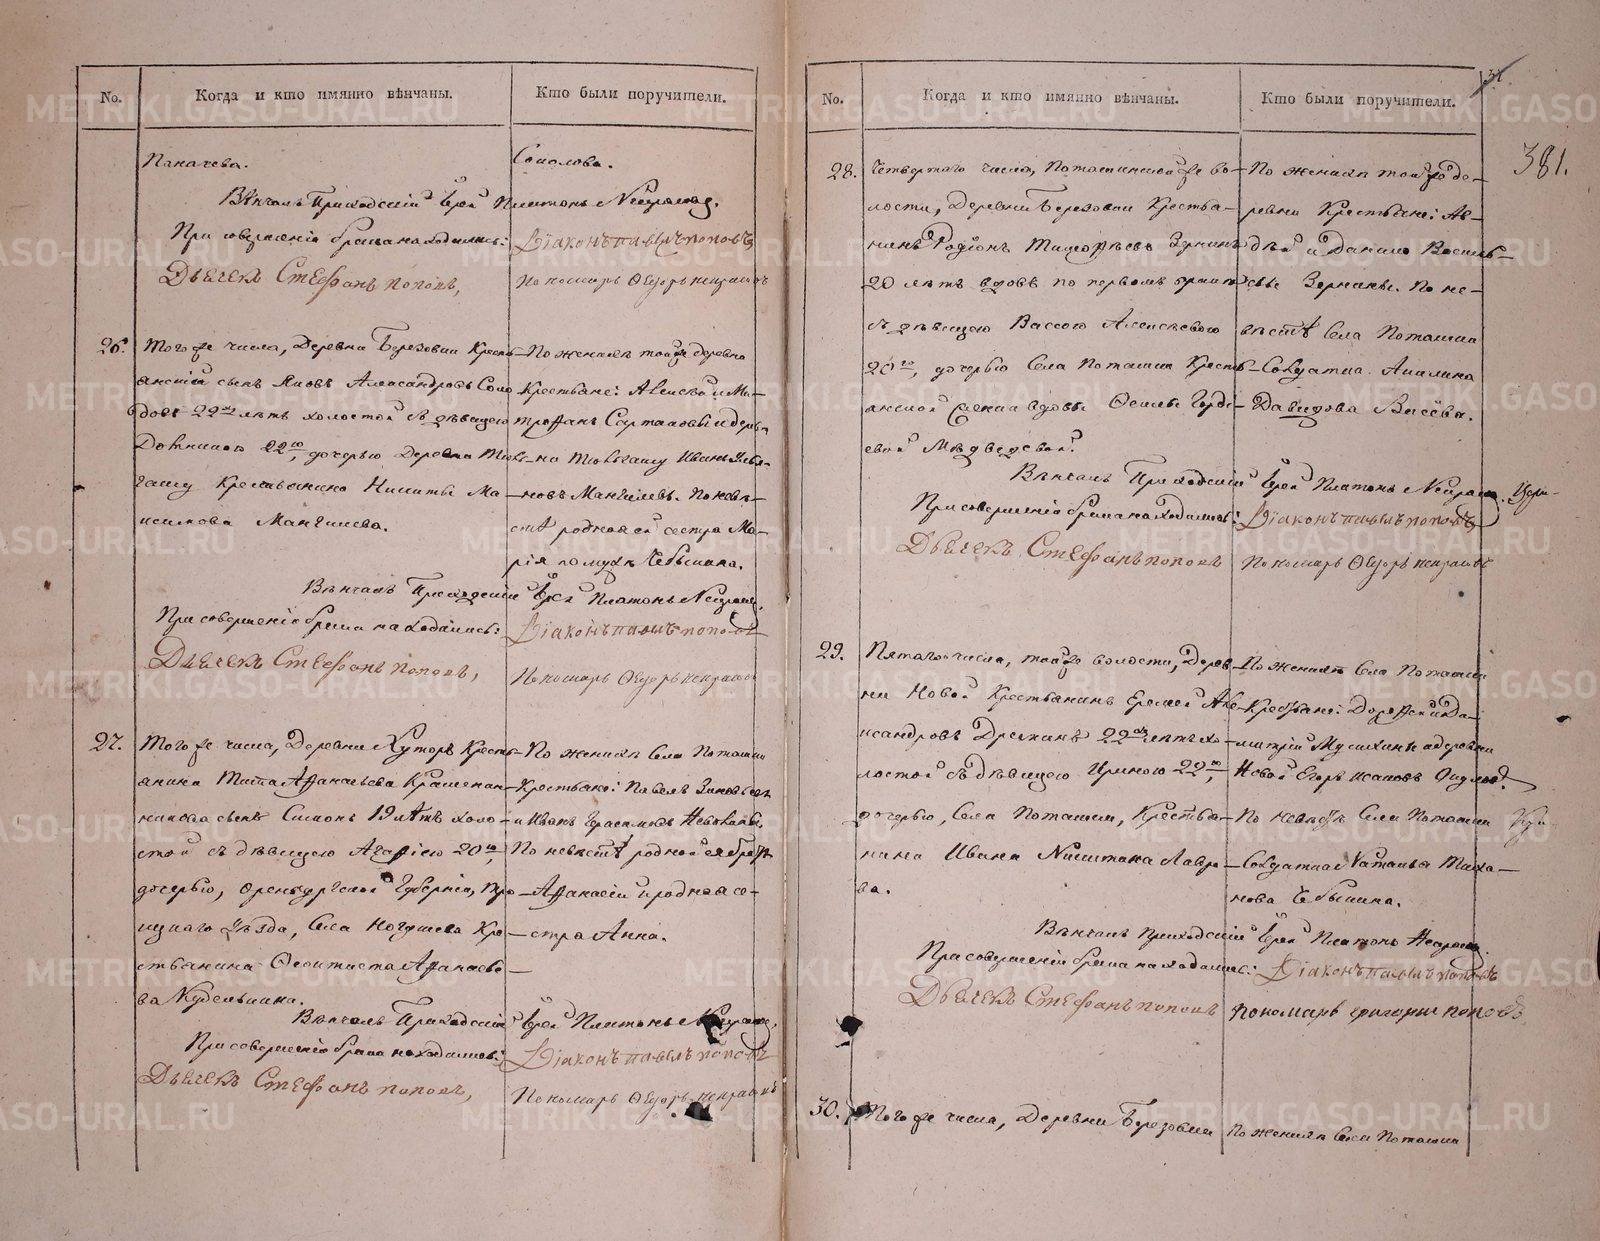 No.
Когда и кто имянно вѣнчаны.
Кто были поручители.
Паначева.
Соколова.
Вѣнчалъ Приходскій Іерей Платонъ
При совершеніи брака находились:
Діаконъ Павелъ Поповъ
Дьячекъ Стефанъ Поповъ,
Пономарь Ѳедоръ Некрасовъ
26.
Того же числа, Деревни Березовки Кресть-
янскій сынъ Яковъ Александровъ
22хъ лѣтъ холостой съ дѣвицею
22ю, дочерью Деревни
Крестьянина Никиты Ма-
ксимова Мангилева.
По женихѣ той же деревни
Крестьяне: Алексѣй и Ми-
трофанъ
Иванъ
новъ Мангилевъ. По невѣ-
стѣ родная ей сестра Ма-
рія по мужѣ Чебыкина.
Вѣнчалъ Приходскій Іерей Платонъ
При совершеніи брака находились:
Діаконъ Павелъ Поповъ
Дьячекъ Стефанъ Поповъ,
Пономарь Ѳедоръ Некрасовъ
27.
Того же числа, Деревни Хуторъ Кресть-
янина Тита Афанасьева Крашенин-
никова сынъ Симонъ 19 лѣтъ холо-
стой съ дѣвицею Агафіею 20ю,
дочерью, Оренбургской Губерніи,
ицкаго Уѣзда, Села Ногушева Кре-
стьянина Феоктиста Афанасье-
ва Куделькина.
По женихѣ Села Поташки
Крестьяне: Павелъ Зиновьевъ
и Иванъ Герасимовъ
По невѣстѣ родной ея братъ
Афанасій и родная се-
стра Анна.
Вѣнчалъ Приходскій Іерей Платонъ
При совершеніи брака находились:
Діаконъ Павелъ Поповъ
Дьячекъ Стефанъ Поповъ,
Пономарь Ѳедоръ Некрасовъ
No.
Когда и кто имянно вѣнчаны.
Кто были поручители.
381.
28.
Четвертаго числа, Поташинской же во-
лости, Деревни Березовки Крестья-
нинъ Родіонъ Тимофѣевъ Зернинъ
20 лѣтъ вдовъ по первомъ бракѣ
съ дѣвицею Вассою Алексѣевою
20ю, дочерью Села Поташки Кресть-
янской вдовы
евой Медведевой.
По женихѣ той же де-
ревни Крестьяне:
и Данило Василь-
евы Зернины. По не-
вѣстѣ Села Поташки
Солдатка Акилина
Давидова
Вѣнчалъ Приходскій Іерей Платонъ
При совершеніи брака находились:
Діаконъ Павелъ Поповъ
Дьячекъ Стефанъ Поповъ
Пономарь Ѳедоръ Некрасовъ
29.
Пятаго числа, той же волости, Дерев-
ни Новой Крестьянинъ Еремей Але-
ксандровъ 22хъ лѣтъ хо-
лостой съ дѣвицею Ириною 22ю,
дочерью, Села Поташки, Крестья-
нина Ивана Никитина Лавро-
ва.
По женихѣ Села Поташки
Крестьяне: Дорофей и Ди-
митрій а деревни
Новой Егоръ Исаковъ
По невѣстѣ Села Поташки
Солдатка Наталья Тиха-
нова Чебыкина.
Вѣнчалъ Приходскій Іерей Платонъ
При совершеніи брака находились:
Діаконъ Павелъ Поповъ
Дьячекъ Стефанъ Поповъ
Пономарь Григорій Поповъ
30.
Того же числа, Деревни Березовки
По женихѣ Села Поташки
METRIKI.GASO-URAL.RU